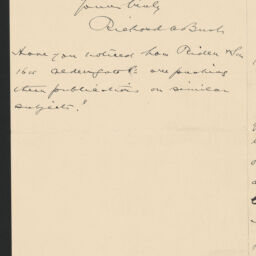 yours truly
Richard A Bush
Have you noticed how Rider & Son
160 Aldersgate St are pushing
their publications on similar
subjects?